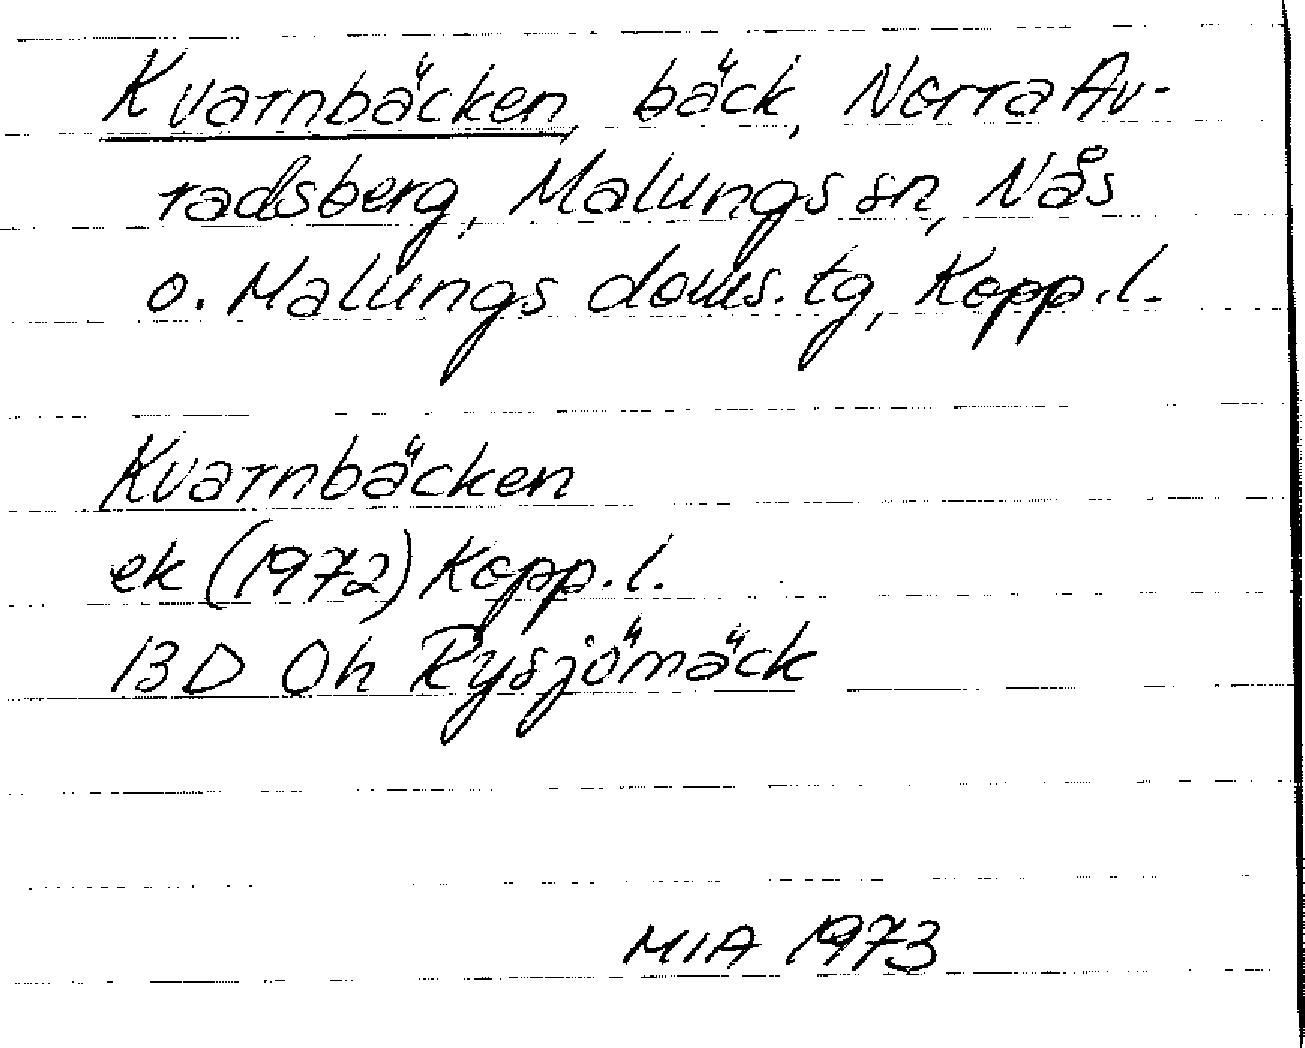 Kvarnbäcken, bäck, Norra Av-
radsberg, Malungs sn, Nås
o. Malungs doms. tg, Kopp.l.
Kvarnbäcken
ek (1972) Kopp.l.
13D 0h Rysjömäck
MIA 1973